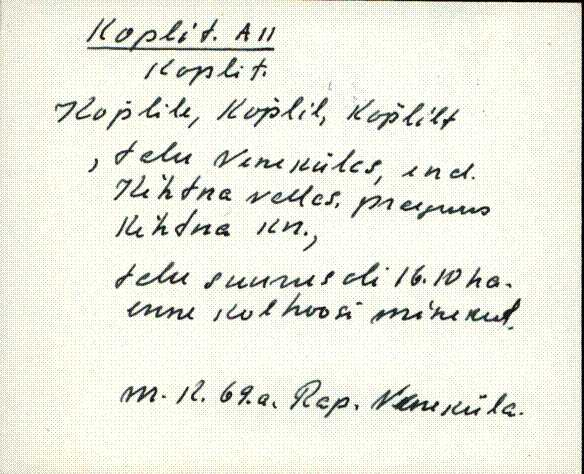 Koplit. A II
Koplit.
Kop̆lile, Kop̆lil, Kop̆lilt
, talu Venekülas, end.
Kehtna vallas. praegune
Kehtna kn.,
talu suurus oli 16.10 ha.
enne kolhoosi minekut.
M. K. 69.a. Rap. Veneküla.